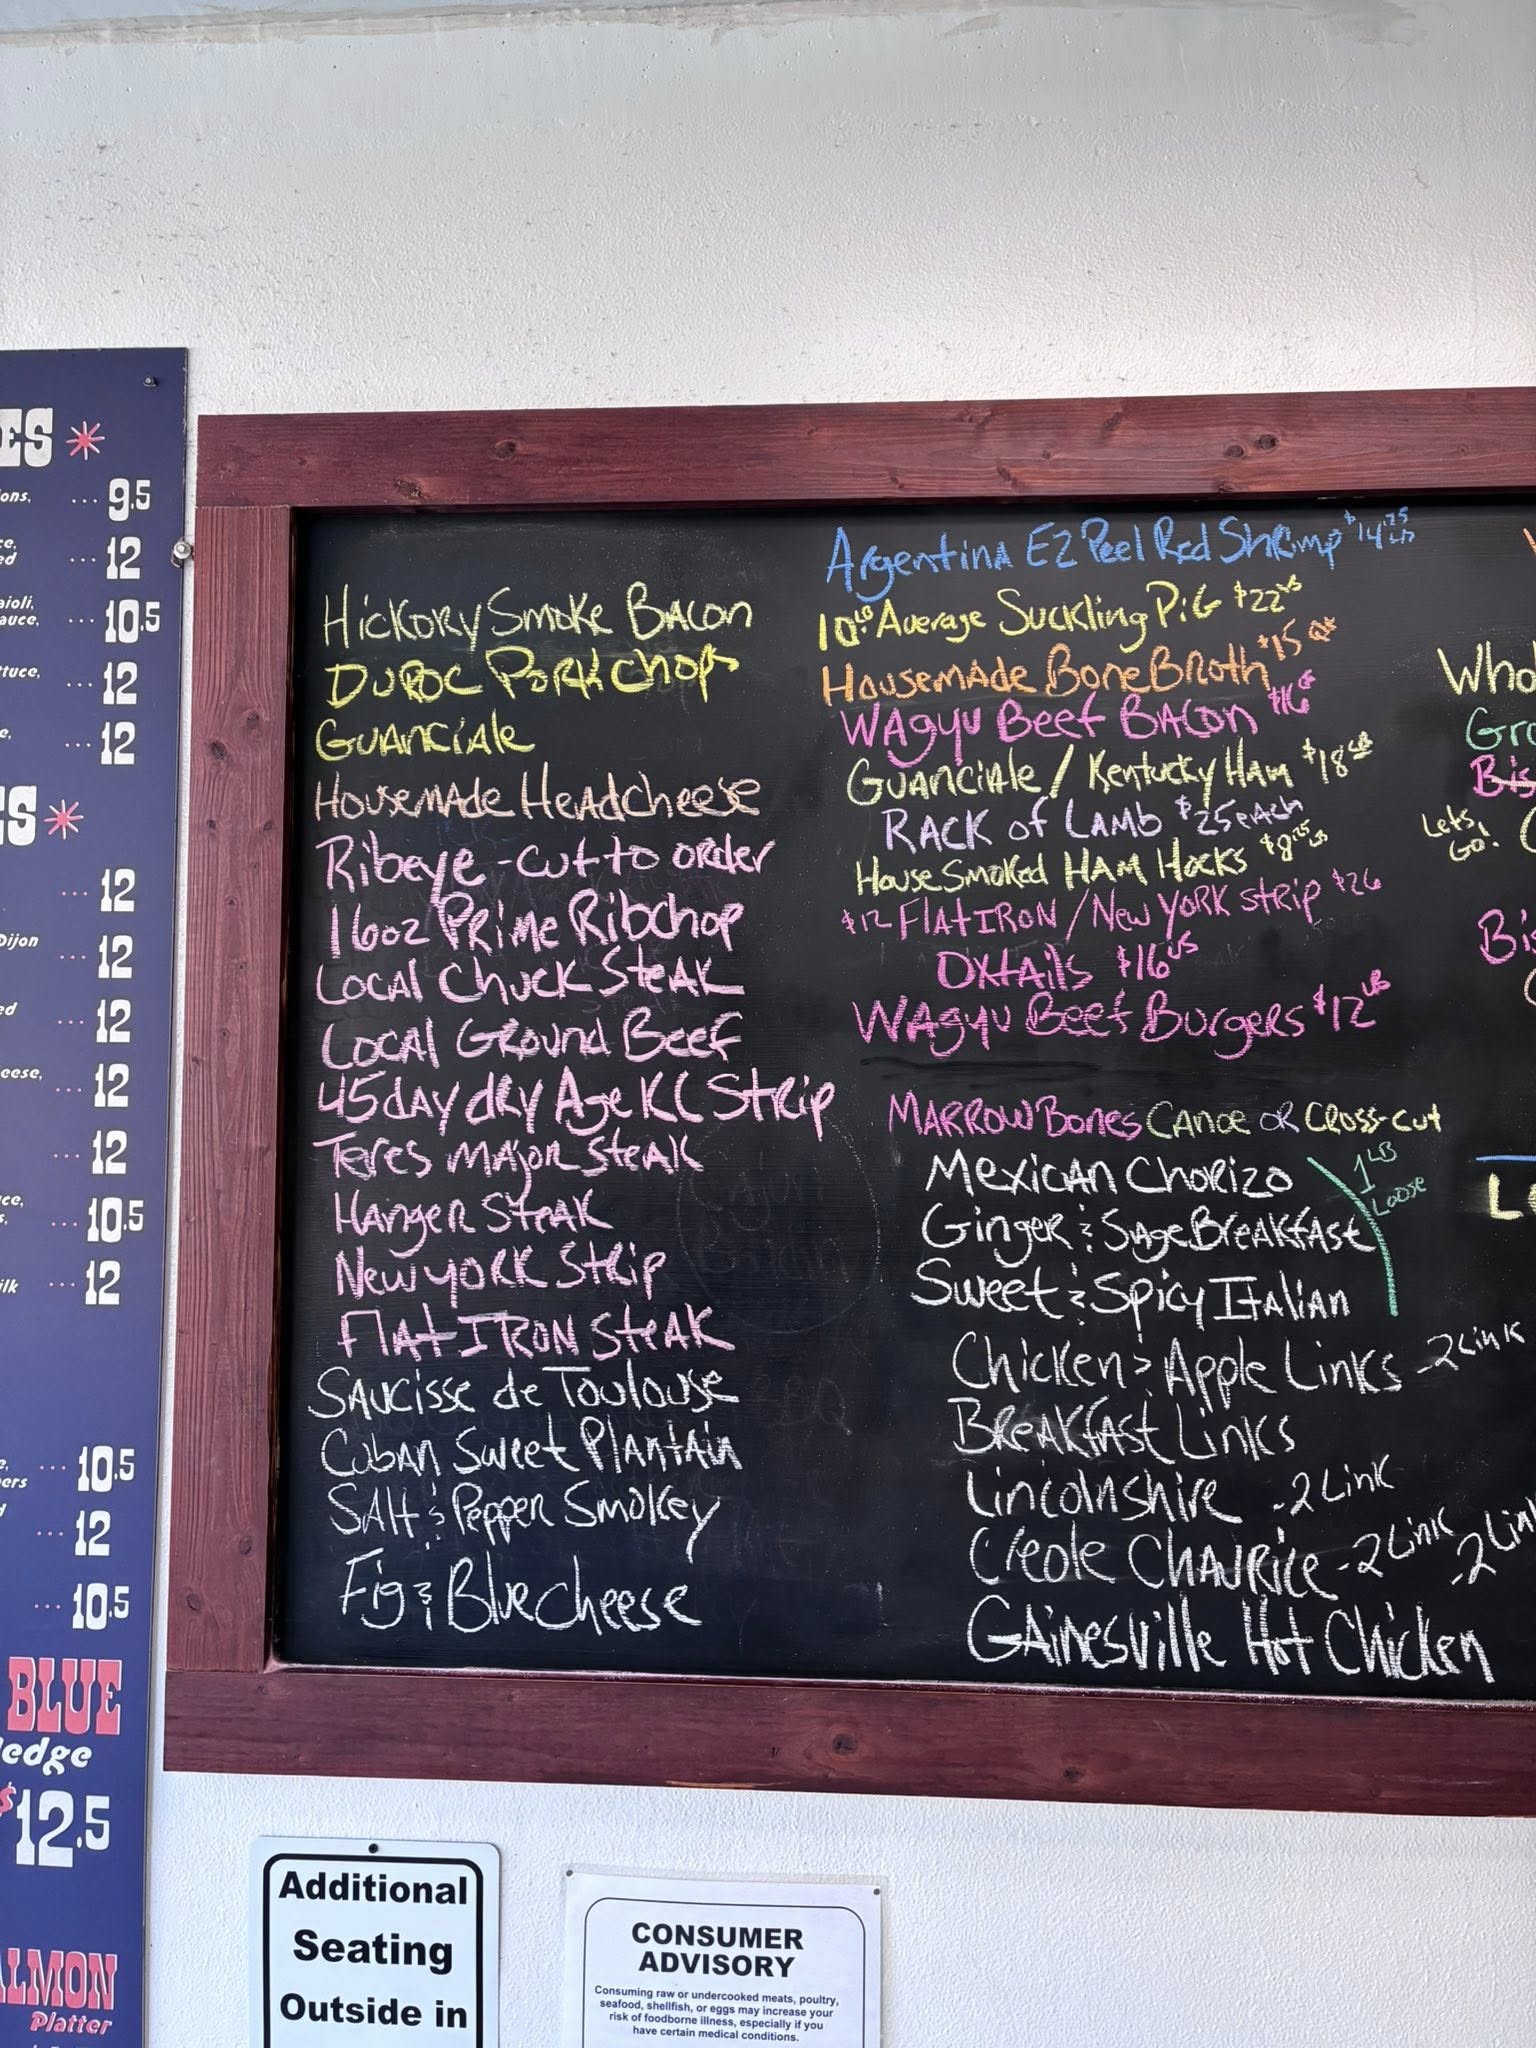 ES
ons, ... 9.5
ce,
ed ... 12
aioli,
auce, ... 10.5
ttuce, ... 12
e, ... 12
S
... 12
Dijon
... 12
ed ... 12
eese, ... 12
... 12
uce,
s, ... 10.5
ilk ... 12
e,
ers ... 10.5
d ... 12
... 10.5
BLUE
ledge
$12.5
ALMON
Platter
Hickory Smoke Bacon
Duroc Pork Chops
Guanciale
Housemade Headcheese
Ribeye - cut to order
16oz Prime Ribchop
Local Chuck Steak
Local Ground Beef
45 day dry Age KC Strip
Teres Major Steak
Hanger Steak
New York Strip
Flat Iron Steak
Saucisse de Toulouse
Cuban Sweet Plantain
Salt & Pepper Smokey
Fig & Blue Cheese
Argentina EZ Peel Red Shrimp $14.25 LB
10 LB. Average Suckling Pig $22 LB
Housemade Bone Broth $15 Qt
Wagyu Beef Bacon $16
Guanciale / Kentucky Ham $18 LB
Rack of Lamb $25 each
House Smoked Ham Hocks $8.25 LB
$12 Flat Iron / New York Strip $26
Oxtails $16 LB
Wagyu Beef Burgers $12 LB
Marrow Bones Canoe or Cross-cut
Mexican Chorizo
Ginger & Sage Breakfast
Sweet & Spicy Italian
1 LB
Loose
Chicken > Apple Links - 2 Link
Breakfast Links
Lincolnshire - 2 Link
Creole Chaurice - 2 Link
Gainesville Hot Chicken - 2 Link
Who
Gro
Bis
Lets
Go!
Bis
Lo
Additional
Seating
Outside in
CONSUMER
ADVISORY
Consuming raw or undercooked meats, poultry,
seafood, shellfish, or eggs may increase your
risk of foodborne illness, especially if you
have certain medical conditions.